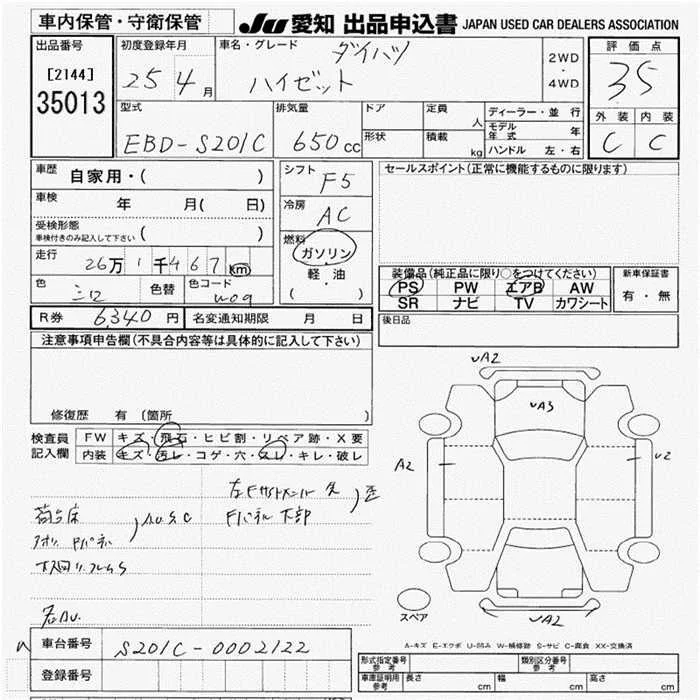 車内保管・守衛保管
JU 愛知 出品申込書 JAPAN USED CAR DEALERS ASSOCIATION
出品番号
[2144]
35013
初度登録年月
25 4 月
車名・グレード
ダイハツ
ハイゼット
2WD
・
4WD
評価点
35
外装 内装
C C
型式
EBD-S201C
排気量
650 cc
ドア
形状
定員 人
積載 kg
ディーラー・並行
モデル年式 年
ハンドル 左・右
車歴
自家用・( )
車検 年 月( 日)
受検形態
車検付きのみ記入して下さい ( )
走行 26万 1千467 km
色 シロ 色替 色コード W09
R券 6340 円 名変通知期限 月 日
シフト F5
冷房 AC
燃料
ガソリン
・
軽油
( )
セールスポイント(正常に機能するものに限ります)
装備品(純正品に限り○をつけてください)
PS PW エアB AW
SR ナビ TV カワシート
新車保証書
有・無
後日品
注意事項申告欄(不具合内容等は具体的に記入して下さい)
修復歴 有 (箇所 )
検査員
記入欄
FW キズ・飛石・ヒビ割・リペア跡・X要
内装 キズ・汚レ・コゲ・穴・スレ・キレ・破レ
荷台床
アオリ Fパネル
AU.S.C
下廻り.フレームS
左Fサイドメンバー先
Fパネル下部
歪
名AU.
UA2
UA3
A2
U2
UA2
スペア
A-キズ E-エクボ U-凹み W-補修跡 S-サビ C-腐食 XX-交換済
車台番号 S201C-0002122
登録番号
形式指定番号
参考
類別区分番号
参考
車庫証明用
参考
長さ cm 幅 cm 高さ cm